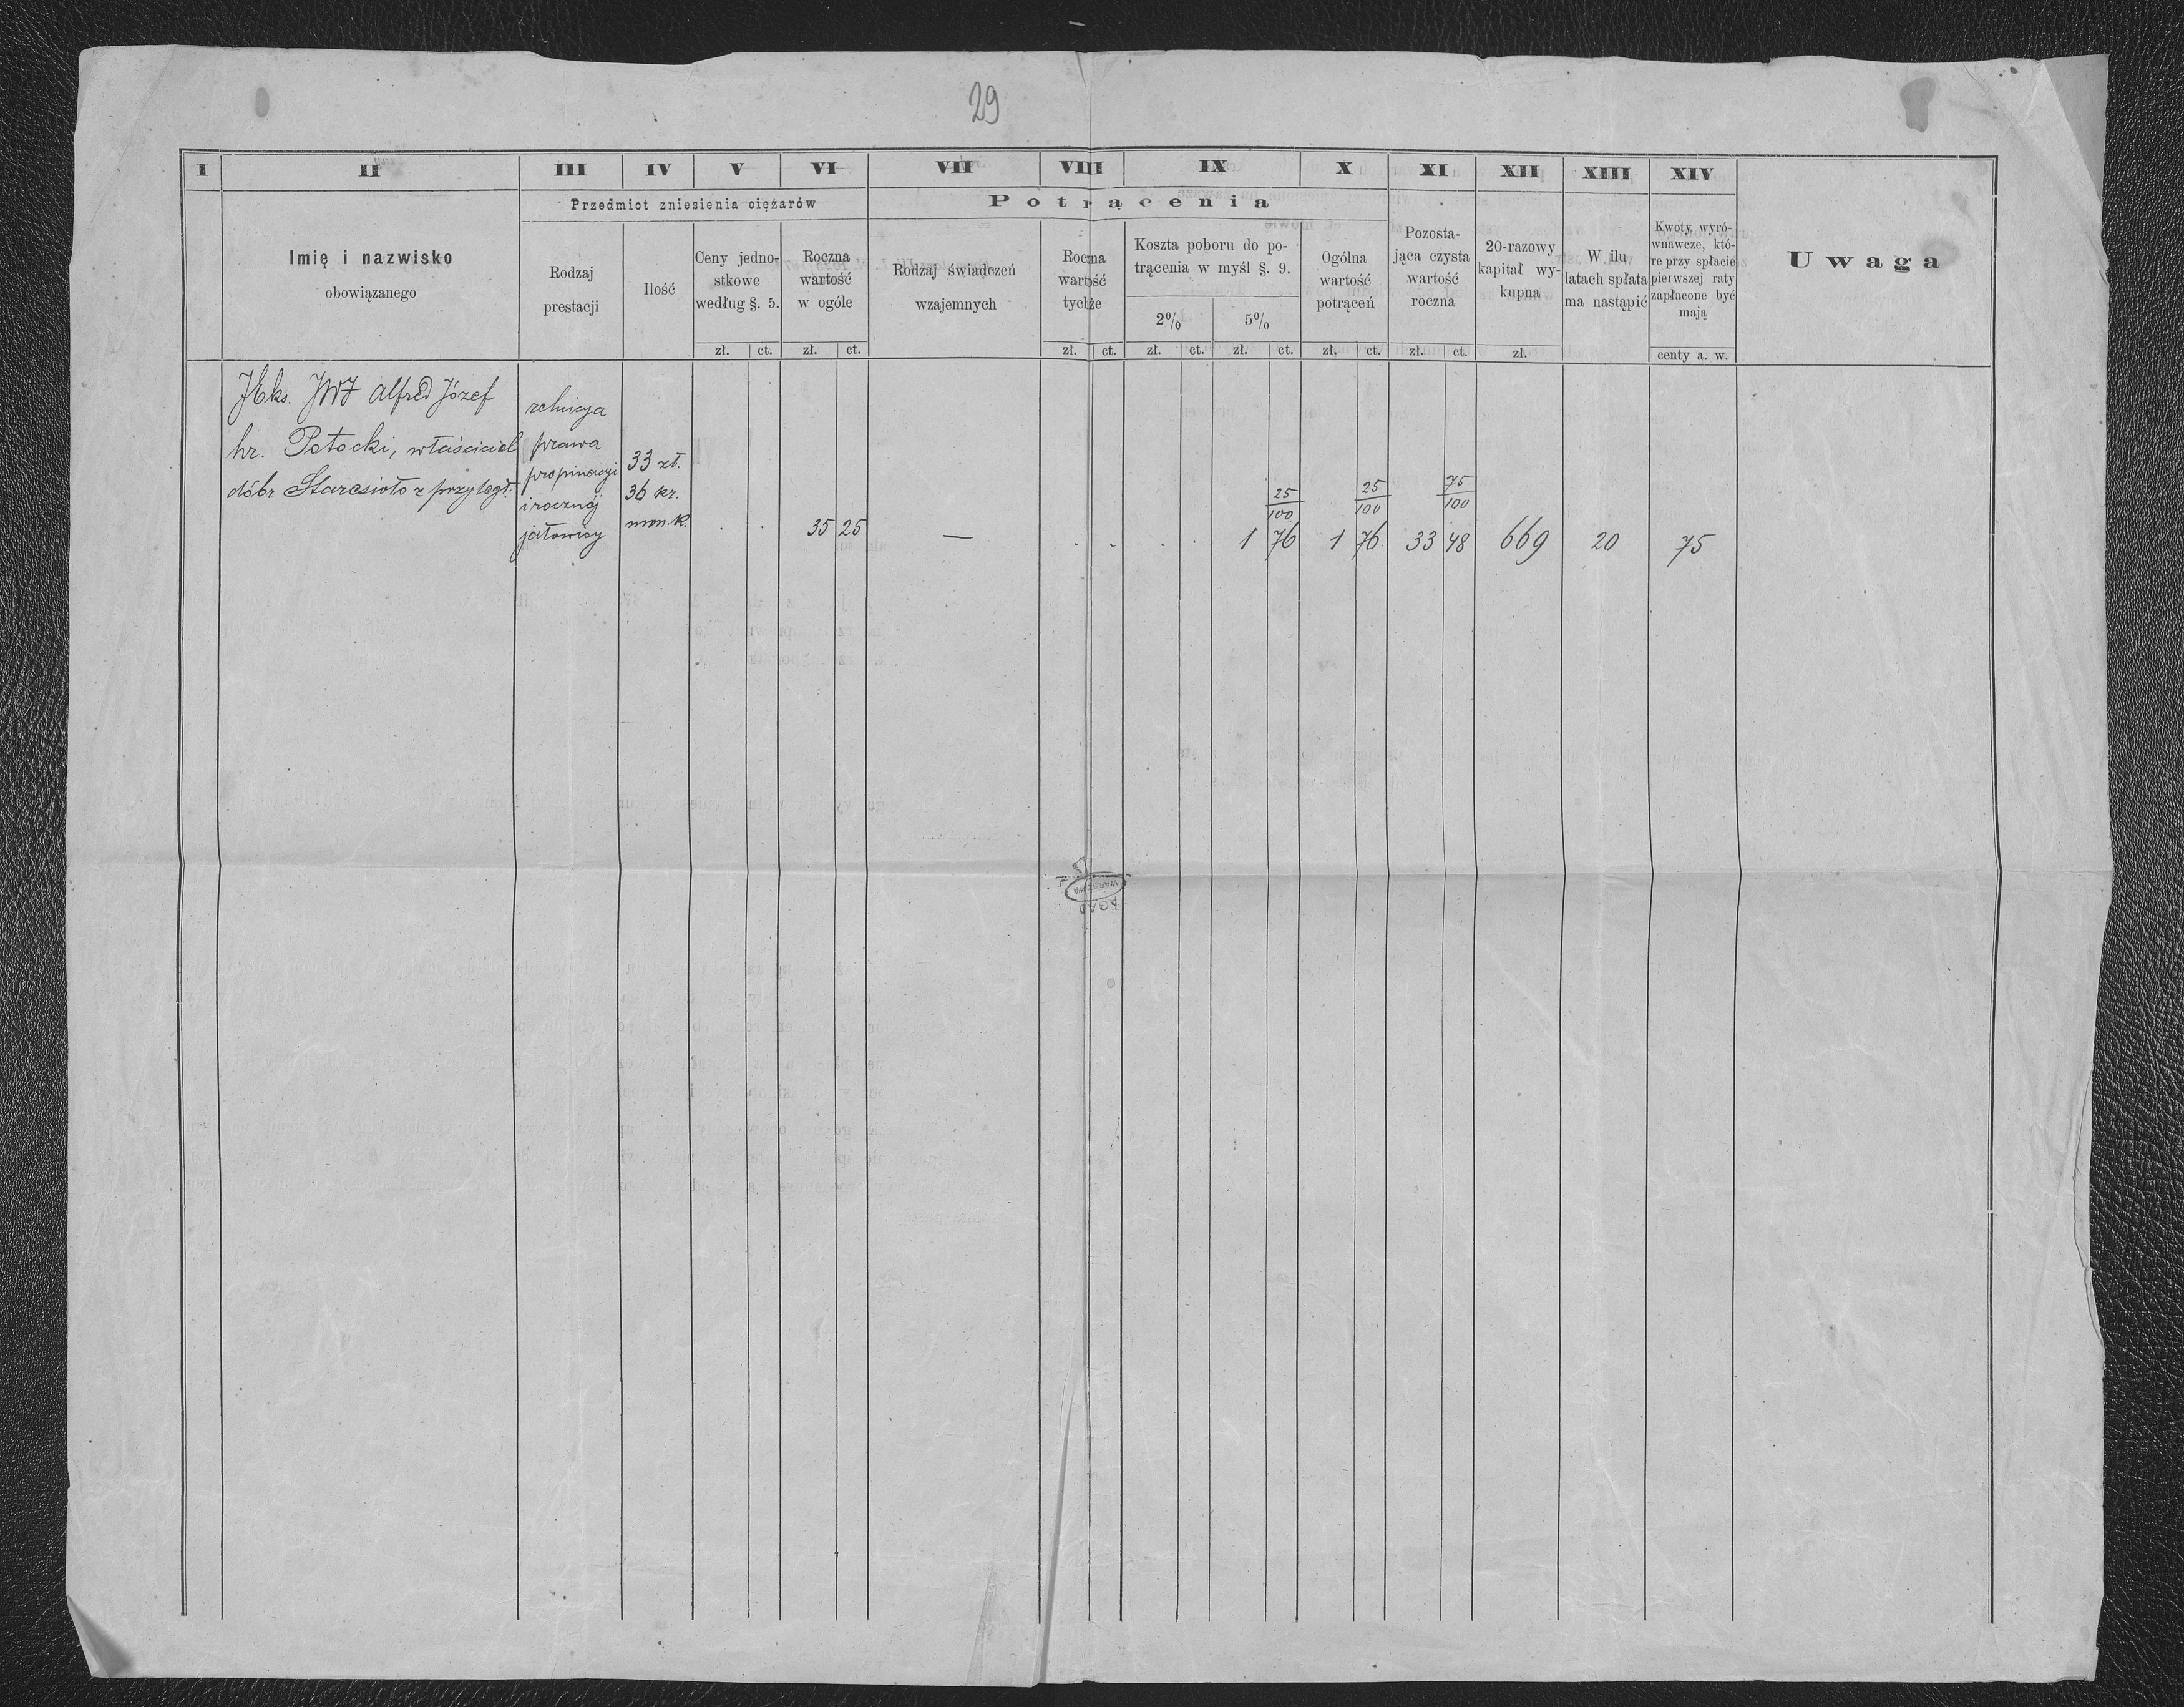 29
I II III IV V VI VII VIII IX X XI XII XIII XIV
Przedmiot zniesienia ciężarów
Potrącenia
Imię i nazwisko
obowiązanego
Rodzaj
prestacji
Ilość
Ceny jedno-
stkowe
według §. 5.
Roczna
wartość
w ogóle
Rodzaj świadczeń
wzajemnych
Roczna
wartość
tychże
Koszta poboru do po-
trącenia w myśl §. 9.
2%
5%
Ogólna
wartość
potrąceń
Pozosta-
jąca czysta
wartość
roczna
20-razowy
kapitał wy-
kupna
W ilu
latach spłata
ma nastąpić
Kwoty wyró-
wnawcze, któ-
re przy spłacie
pierwszej raty
zapłacone być
mają
Uwaga
zł. ct. zł. ct. zł. ct. zł. ct. zł. ct. zł. ct. zł. ct. zł. centy a. w.
JEks. JWJ Alfred Józef
hr. Potocki, właściciel
dóbr Staresioło z przyległ.
reluicya
prawa
propinacyi
i rocznéj
jałowicy
33 zł.
36 kr.
mon. k.
. . 35 25 — . . . . 1 76 25/100 1 76 25/100 33 48 75/100 669 20 75
WARSZAWA
AGAD